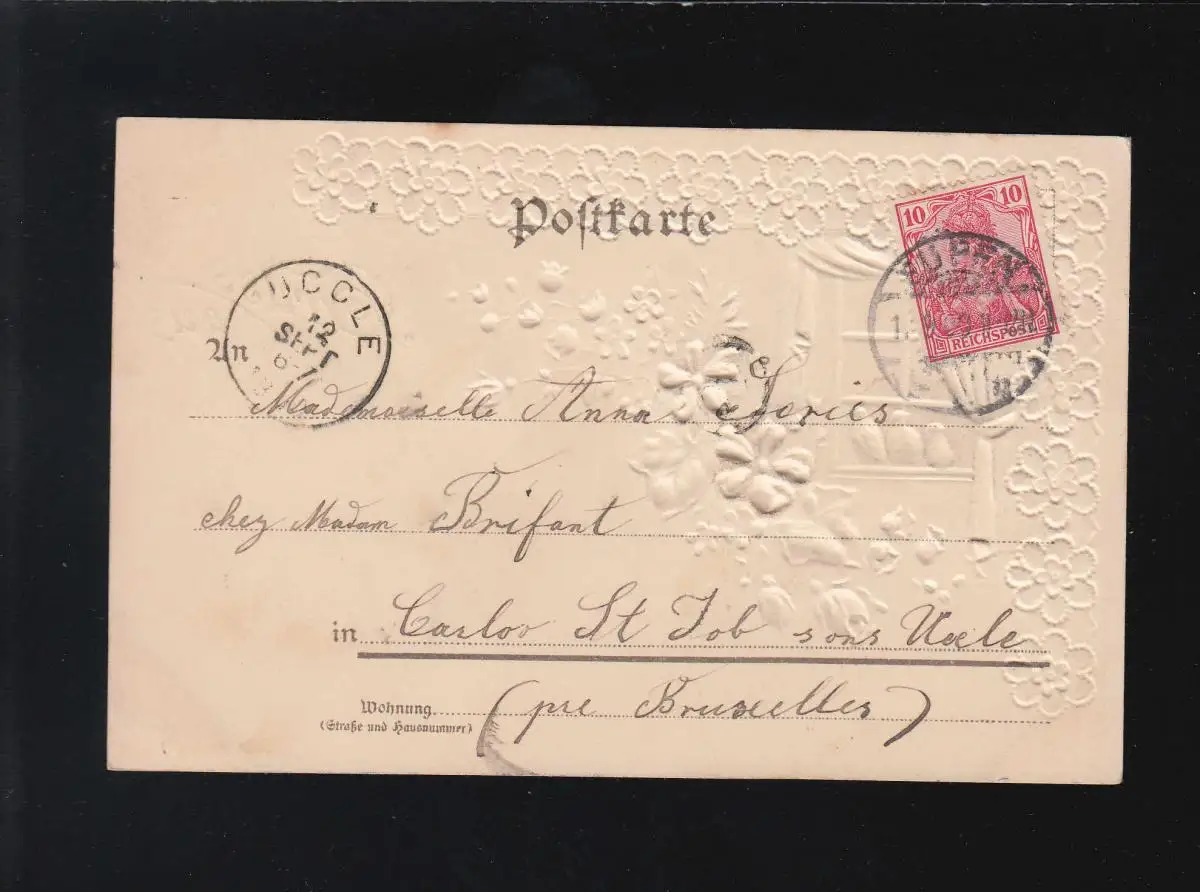 Postkarte
10 10
REICHSPOST
EUPEN
UCCLE
12
SEPT
An
Mademoiselle Anna
chez Madam Brifant
in Carloo St Job sous Uccle
Wohnung
(Straße und Hausnummer)
(pre Bruxelles)